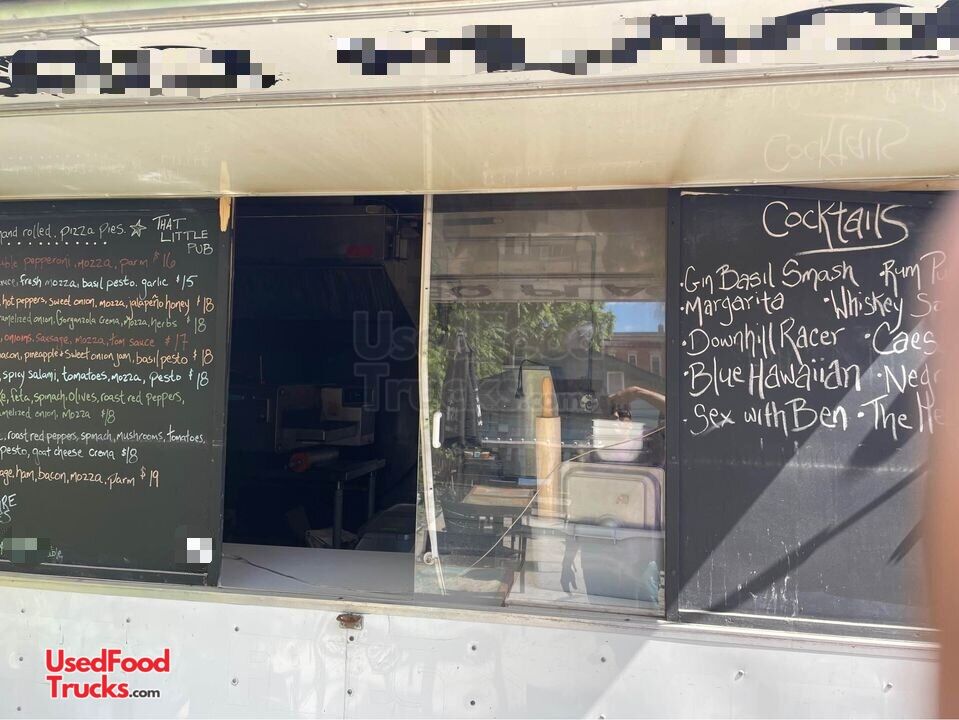 hand rolled. pizza pies. ☆ THAT
LITTLE
PUB
pepperoni, mozza, parm $16
fresh mozza, basil pesto. garlic $15
hot peppers, sweet onion, mozza, jalapeño honey $18
onion, Gorgonzola Crema, Mozza, herbs $18
onions, sausage, mozza, tom sauce $17
bacon, pineapple + sweet onion jam, basil pesto $18
spicy salami, tomatoes, mozza, pesto $18
feta, spinach, olives, roast red peppers,
onion, mozza $18
roast red peppers, spinach, mushrooms, tomatoes,
pesto, goat cheese crema $18
ham, bacon, mozza, parm $19
Cocktails
Cocktails
• Gin Basil Smash • Rum
• Margarita • Whiskey
• Downhill Racer
• Blue Hawaiian
Sex with Ben • The
Used Food
Trucks.com
UsedFood
Trucks.com